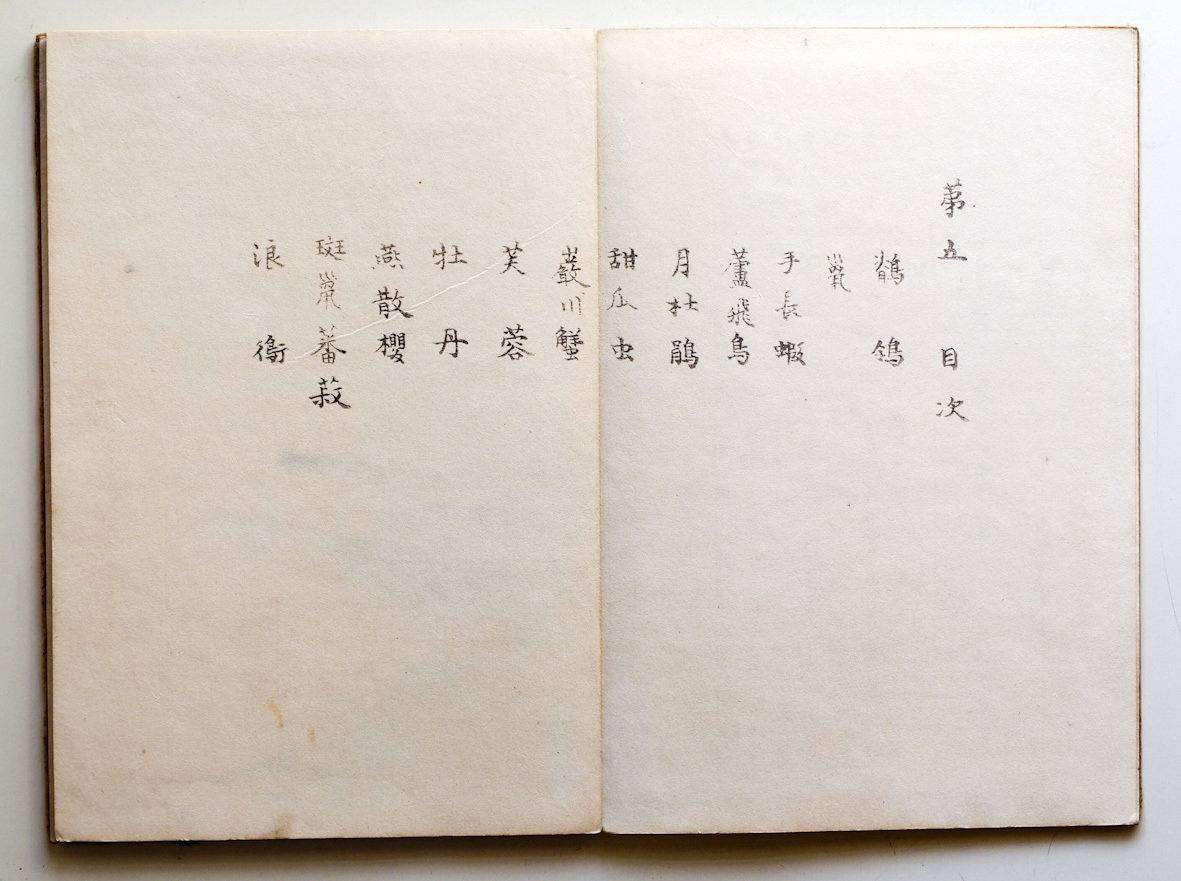 苐五 目次
鶺鴒
巤
手長蝦
蘆飛鳥
月杜鵑
甜瓜虫
巌川蟹
芙蓉
牡丹
燕散櫻
斑巤蕃菽
浪鵆